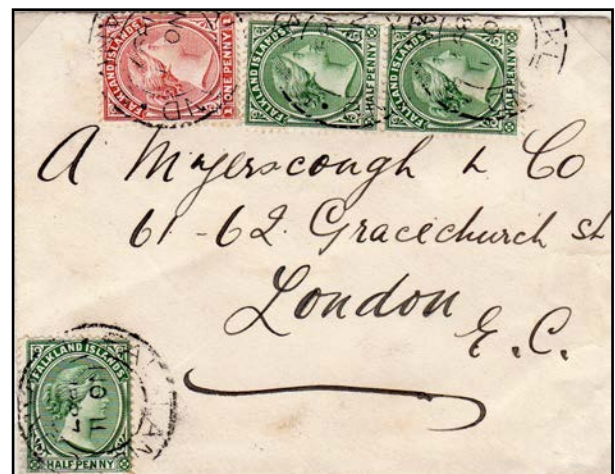 FALKLAND ISLANDS
ONE PENNY
FALKLAND ISLANDS
HALFPENNY
FALKLAND ISLANDS
HALFPENNY
A Myerscough & Co
61-62. Gracechurch St
London
E.C.
FALKLAND ISLANDS
HALFPENNY